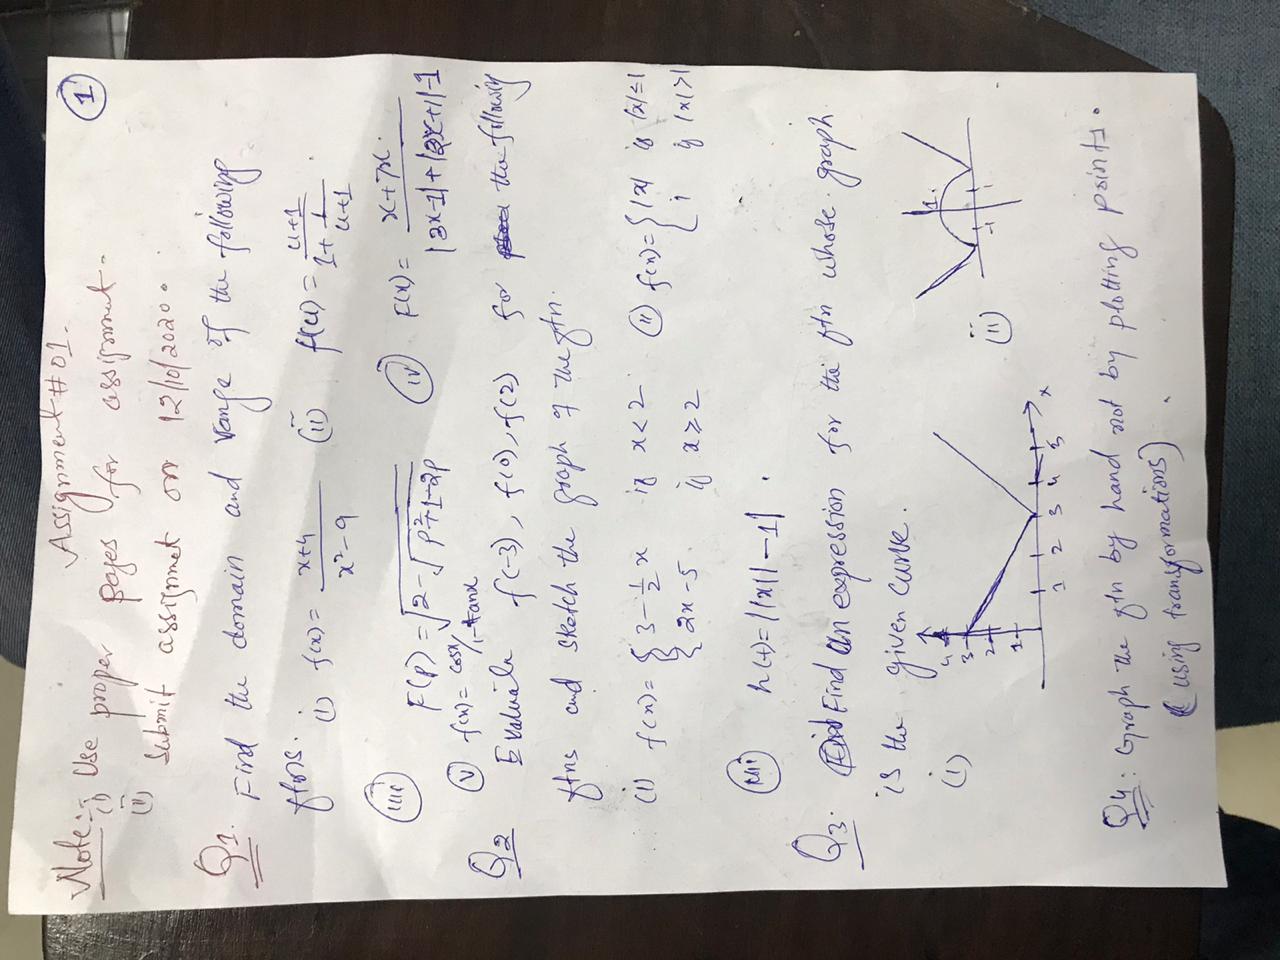 Assignment # 01.
1
Note:- (i) Use proper pages for assignment.
(ii) Submit assignmet on 12/10/2020.
Q1. Find the domain and range of the following
ftns. (i) f(x) = x+4 / x²-9 (ii) f(u) = u+1 / 1 + 1/u+1 .
(iii) F(p) = √2-√p²+1-2p (iv) F(x) = x+7x. / |3x-1|+|2x+1|-1
(v) f(x) = cosx/1-tanx
Q2 Evaluate f(-3), f(0), f(2) for the following
ftns and sketch the graph of the ftn.
(i) f(x) = { 3-1/2 x if x<2 (ii) f(x) = { |x| if |x|≤1
2x-5 if x≥2 1 if |x|>1
(iii) h(t) = ||x|-1| .
Q3. Find an expression for the ftn whose graph
is the given curve.
(i) 4 3 2 1 1 2 3 4 5 x
(ii) 1. -1 1
Q4: Graph the ftn by hand not by plotting points.
(using transformations) .